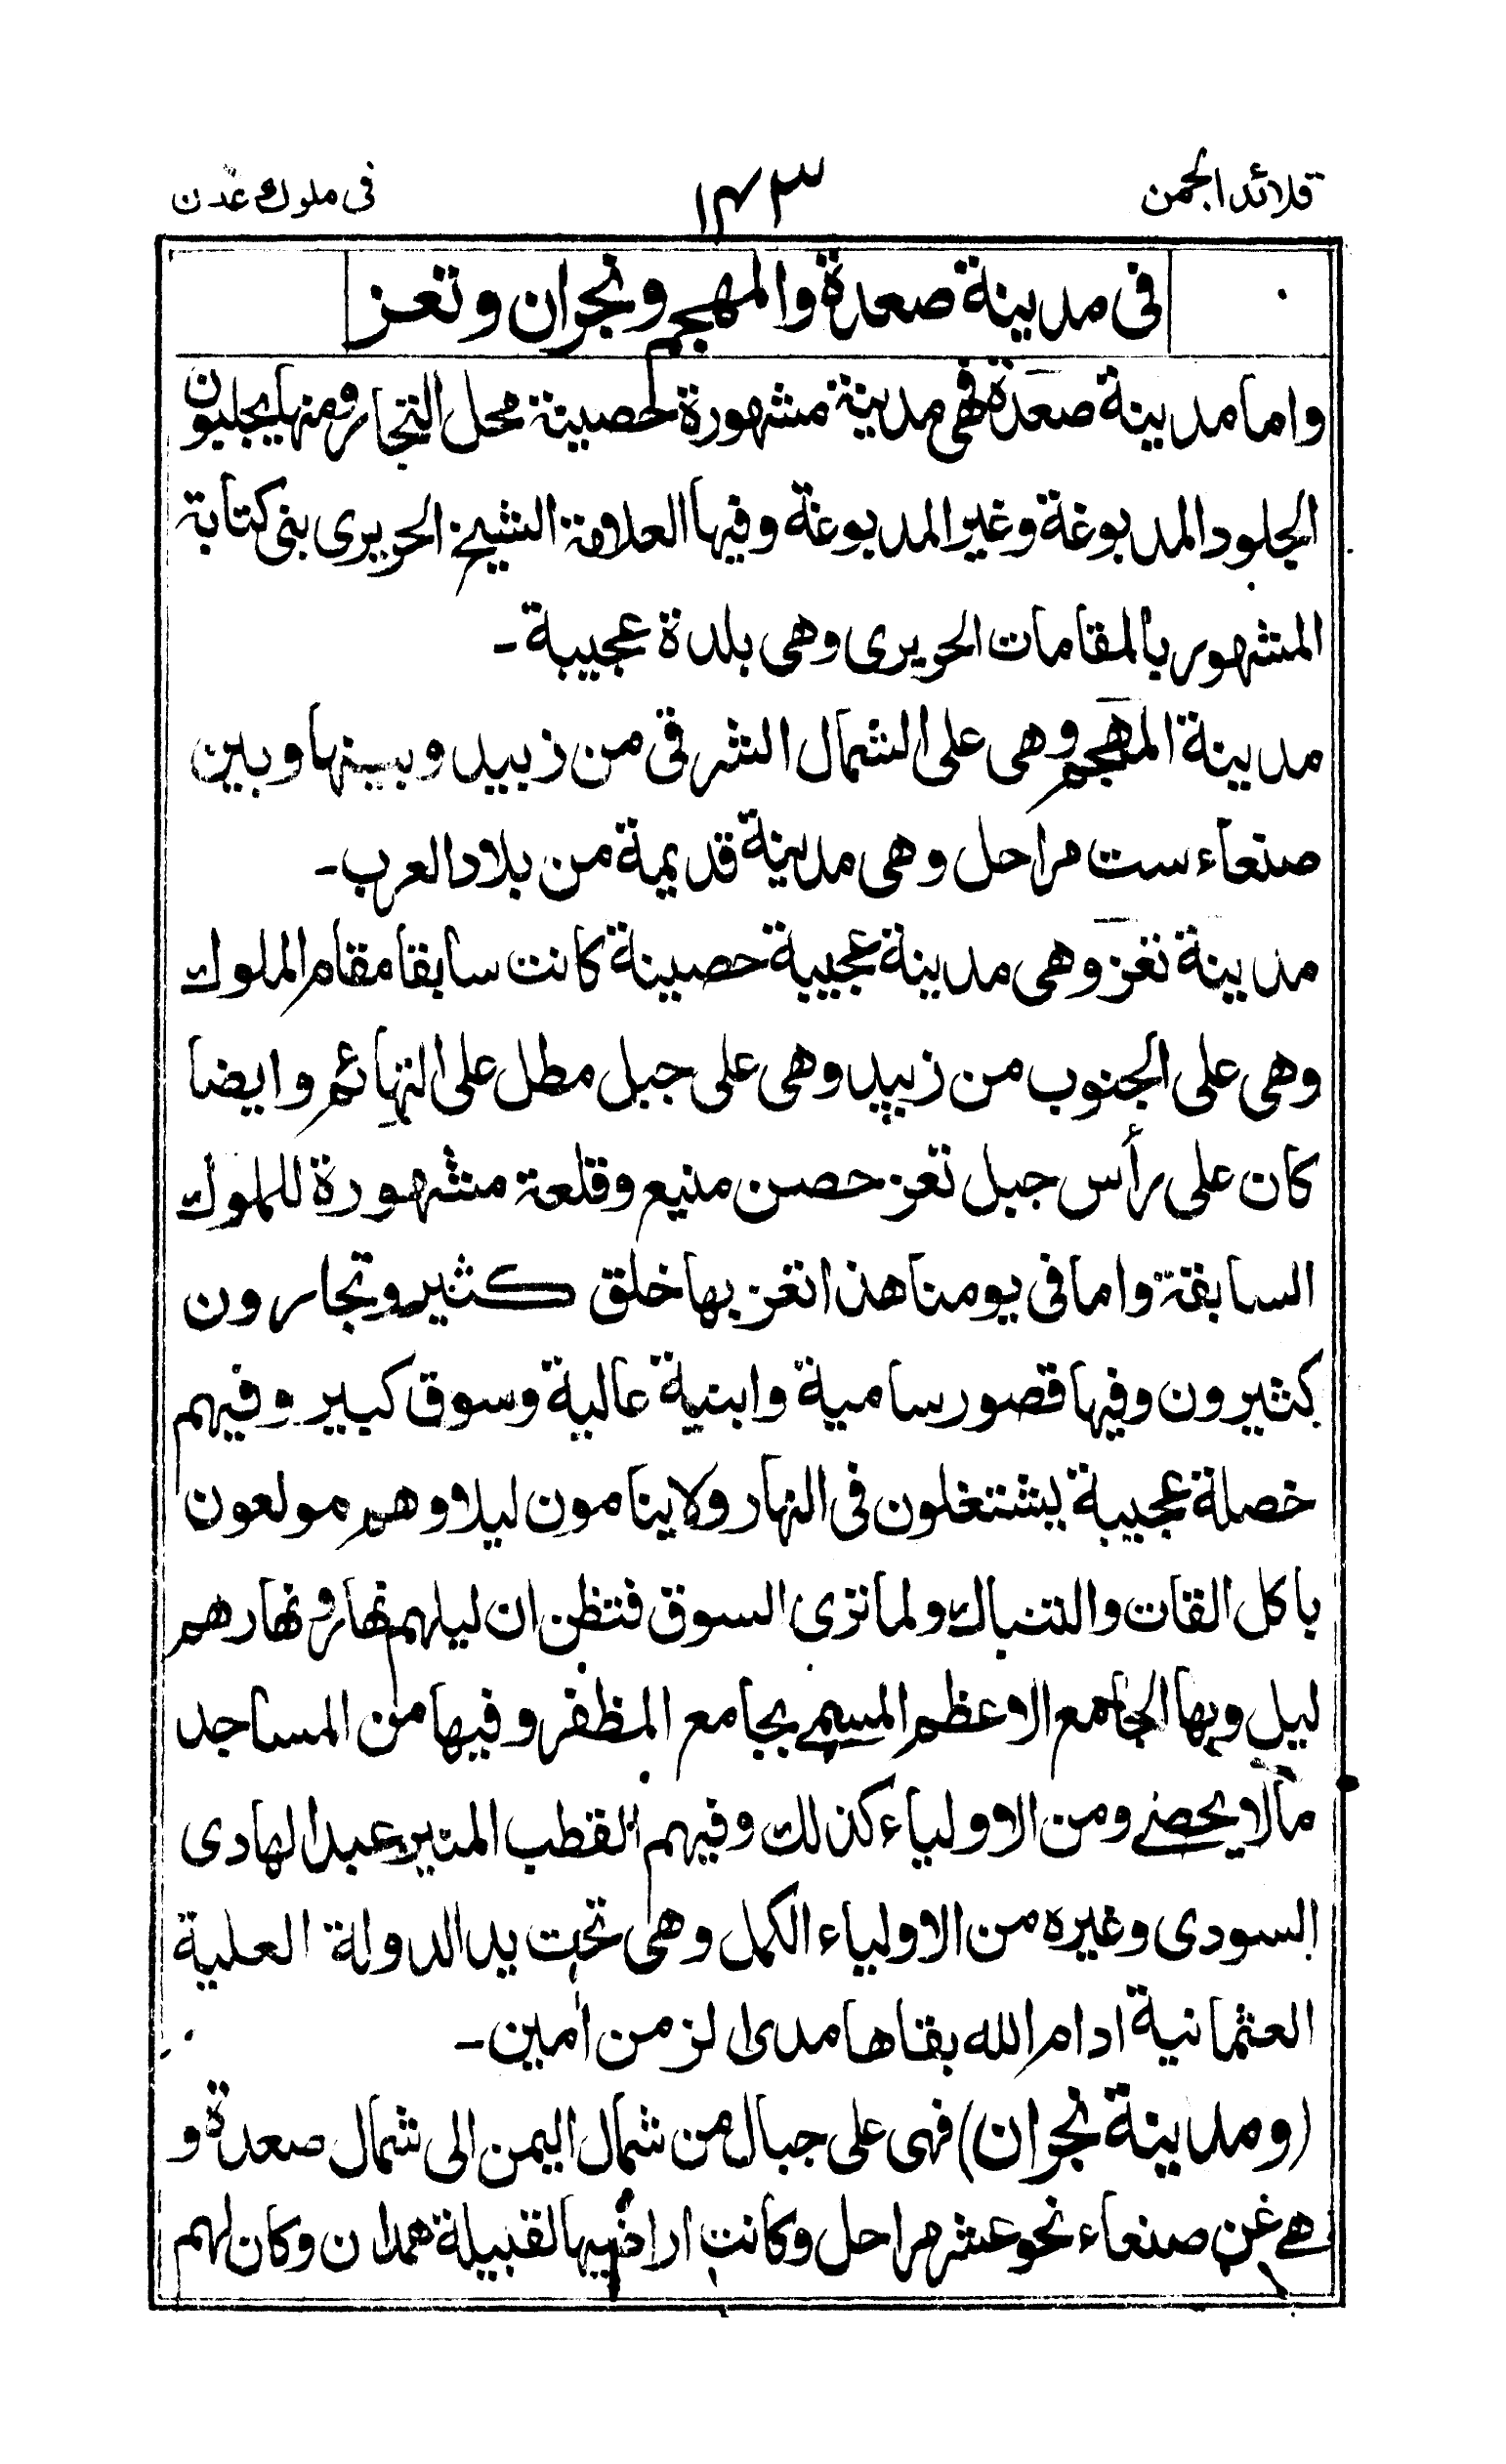 قلائد الجمن
١٤٣
في ملوك عدن
في مدينة صعدة والمهجم ونجران وتعز
واما مدينة صعدة فهى مدينة مشهورة لحصينة محل التجار ومنها يجلبون
الجلود المدبوغة وغير المدبوغة وفيها العلامة الشيخ الحريرى بنى كتابة
المشهور بالمقامات الحريرى وهى بلدة عجيبة -
مدينة المهجم وهى على الشمال الشرقى من زبيد وبينها وبين
صنعاء ست مراحل وهى مدينة قديمة من بلاد العرب -
مدينة تعز وهى مدينة عجيبة حصينة كانت سابقا مقام الملوك
وهى على الجنوب من زبيد وهى على جبل مطل على التهائم وايضا
كان على رأس جبل تعز حصن منيع وقلعة مشهورة للملوك
السابقة واما فى يومنا هذا تعز بها خلق كثير وتجارون
كثيرون وفيها قصور سامية وابنية عالية وسوق كبير وفيهم
خصلة عجيبة يشتغلون فى النهار ولا ينامون ليلا وهم مولعون
باكل القات والتنباك ولما ترى السوق فتظن ان ليلهم نهار ونهارهم
ليل وبها الجامع الاعظم المسمے بجامع المظفر وفيها من المساجد
مالا يحصے ومن الاولياء كذلك وفيهم القطب المنير عبد الهادى
السودى وغيره من الاولياء الكمل وهى تحت يد الدولة العلية
العثمانية ادام الله بقاها مدى الزمن امين -
(ومدينة نجران) فهى على جبال من شمال اليمن الى شمال صعدة و
هے عن صنعاء نحو عشر مراحل وكانت اراضيها لقبيلة همدان وكان لهم